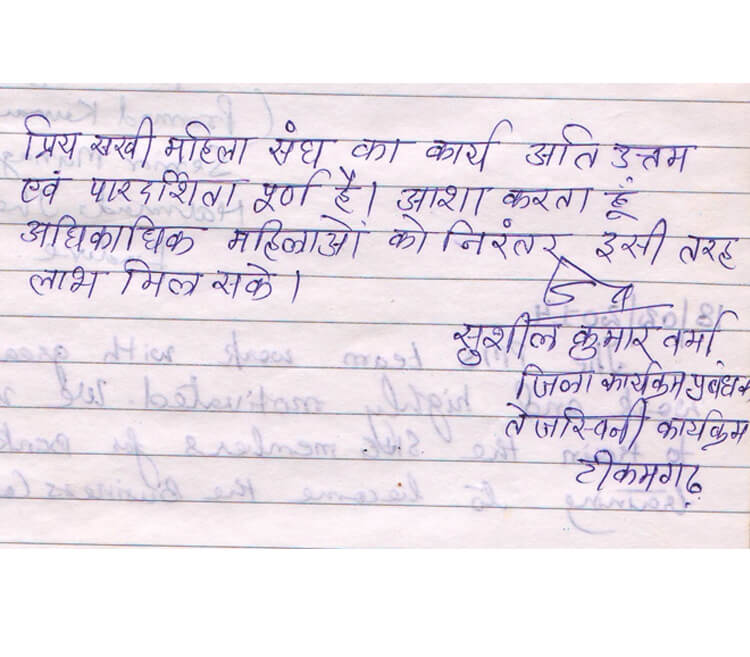 प्रिय सखी महिला संघ का कार्य अति उत्तम
एवं पारदर्शिता पूर्ण है। आशा करता हूँ
अधिकाधिक महिलाओं को निरंतर इसी तरह
लाभ मिल सके।
सुशील कुमार वर्मा
जिला कार्यक्रम प्रबंधक
तेजस्विनी कार्यक्रम
टीकमगढ़